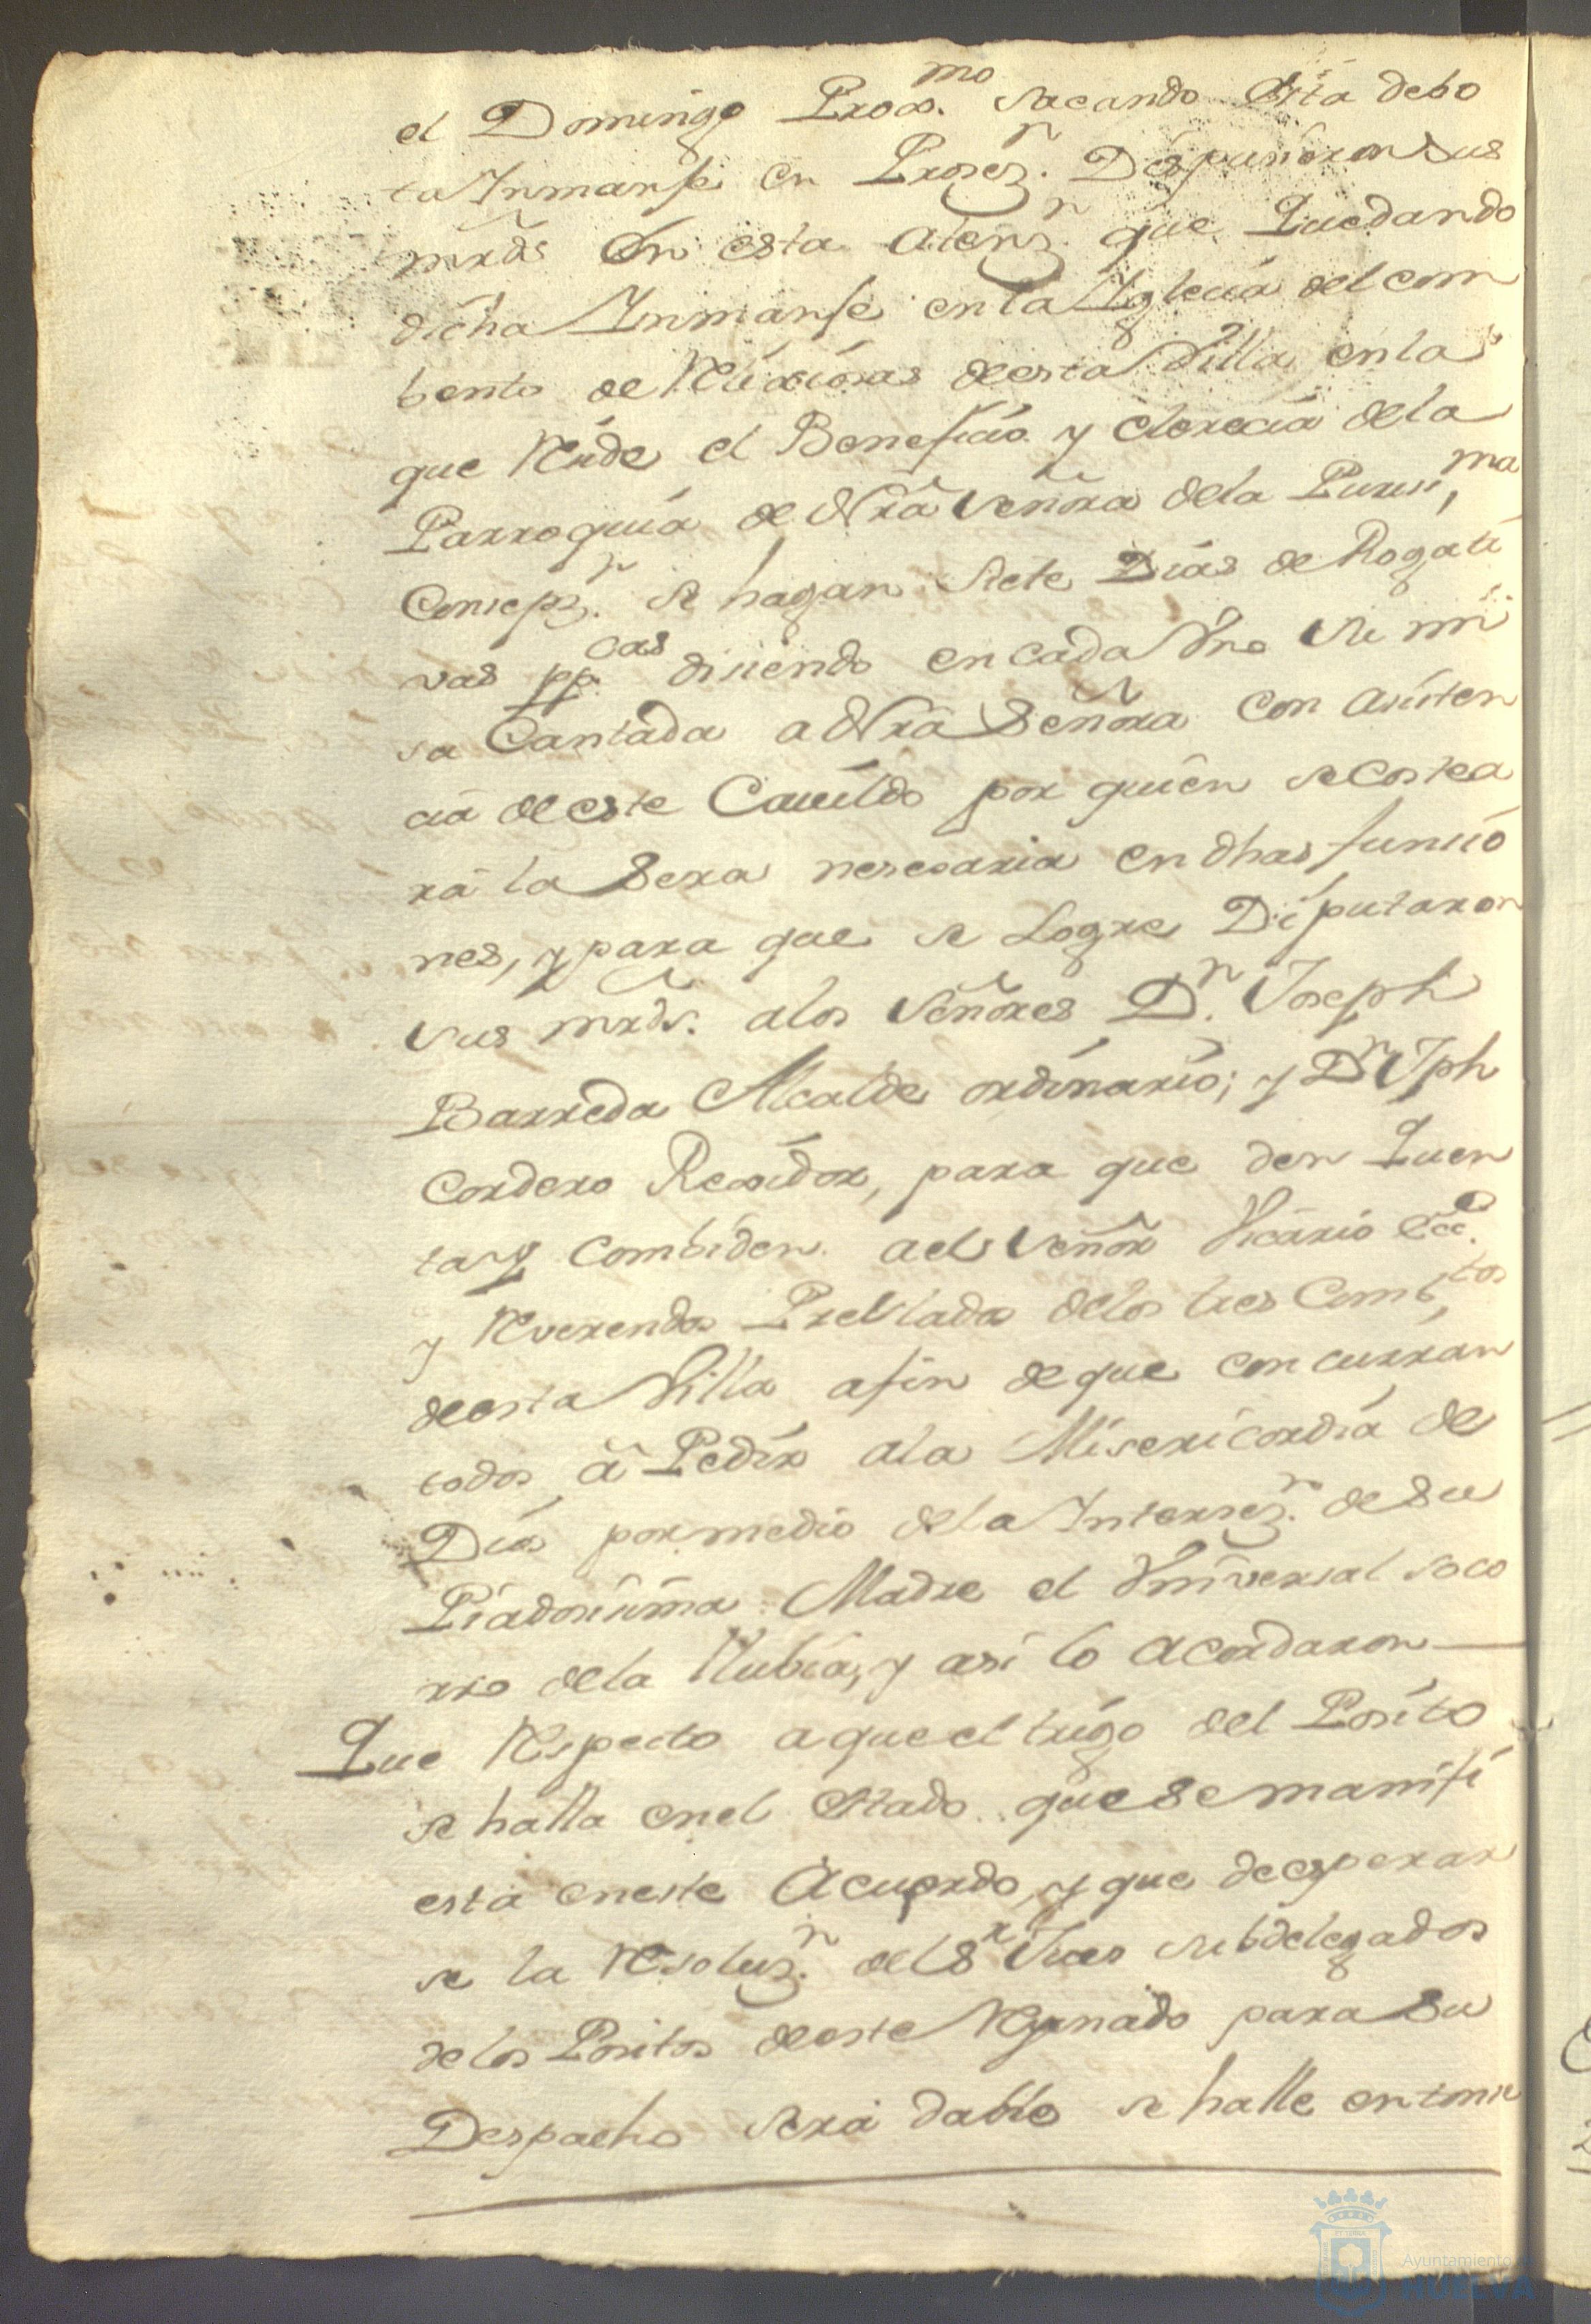 el Domingo Prox.mo sacando esta debo
ta Inmanse en Prosez.n Dispusieron sus
mrds en esta atenz.n que Quedando
dicha Inmanse en la Iglecia del com
bento de Relixiosas de esta Villa en la
que Recide el Beneficio y clerecia de la
Parroquia de Nra Señora de la Puriss,ma
Consepz.n se hagan siete Dias de Rogati
vas pp.cas disiendo en cada Vno su mi
sa Cantada a Nra Señora con asisten
cia de este Cauildo por quien se Costea
rá la Sera nesesaria en dhas funsio
nes, y para que se Logre Diputaron
sus mrds. a los Señores D.n Joseph
Barreda Alcalde ordinario; y Dn Jph
Cordero Rexidor, para que den Quen
ta y Combiden a el Señor Vicario Ecc.o
y Reverendos Prelados de los tres Comb,tos
de esta Villa a fin de que concurran
todos á Pedir a la Misericordia de
Dios por medio de la Intersez.n de su
Piadosisima Madre el Vniversal soco
rro de la Nubia, y asi lo acordaron
Que Respecto a que el trigo del Posito
se halla en el Estado que se manifi
esta en este Acuerdo, y que de esperar
se la Resoluz.n del Sr Jues subdelegados
de los Positos de este Reynado para su
Despacho sera dable se halle entonse
Ayuntamiento de
HUELVA